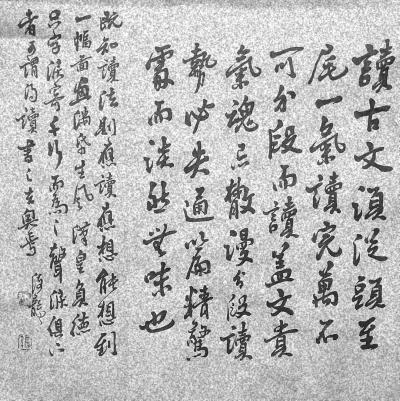 讀古文須從頭至
尾一氣讀完萬不
可分段而讀蓋文貴
氣魂忌散漫分段讀
勢必失通篇精
而淡然無味也
既知讀法則應讀應想能想到
一幅畫滿卷生風漢皇負德
只字千行而為之聲淚俱下
者可謂得讀書之奧焉